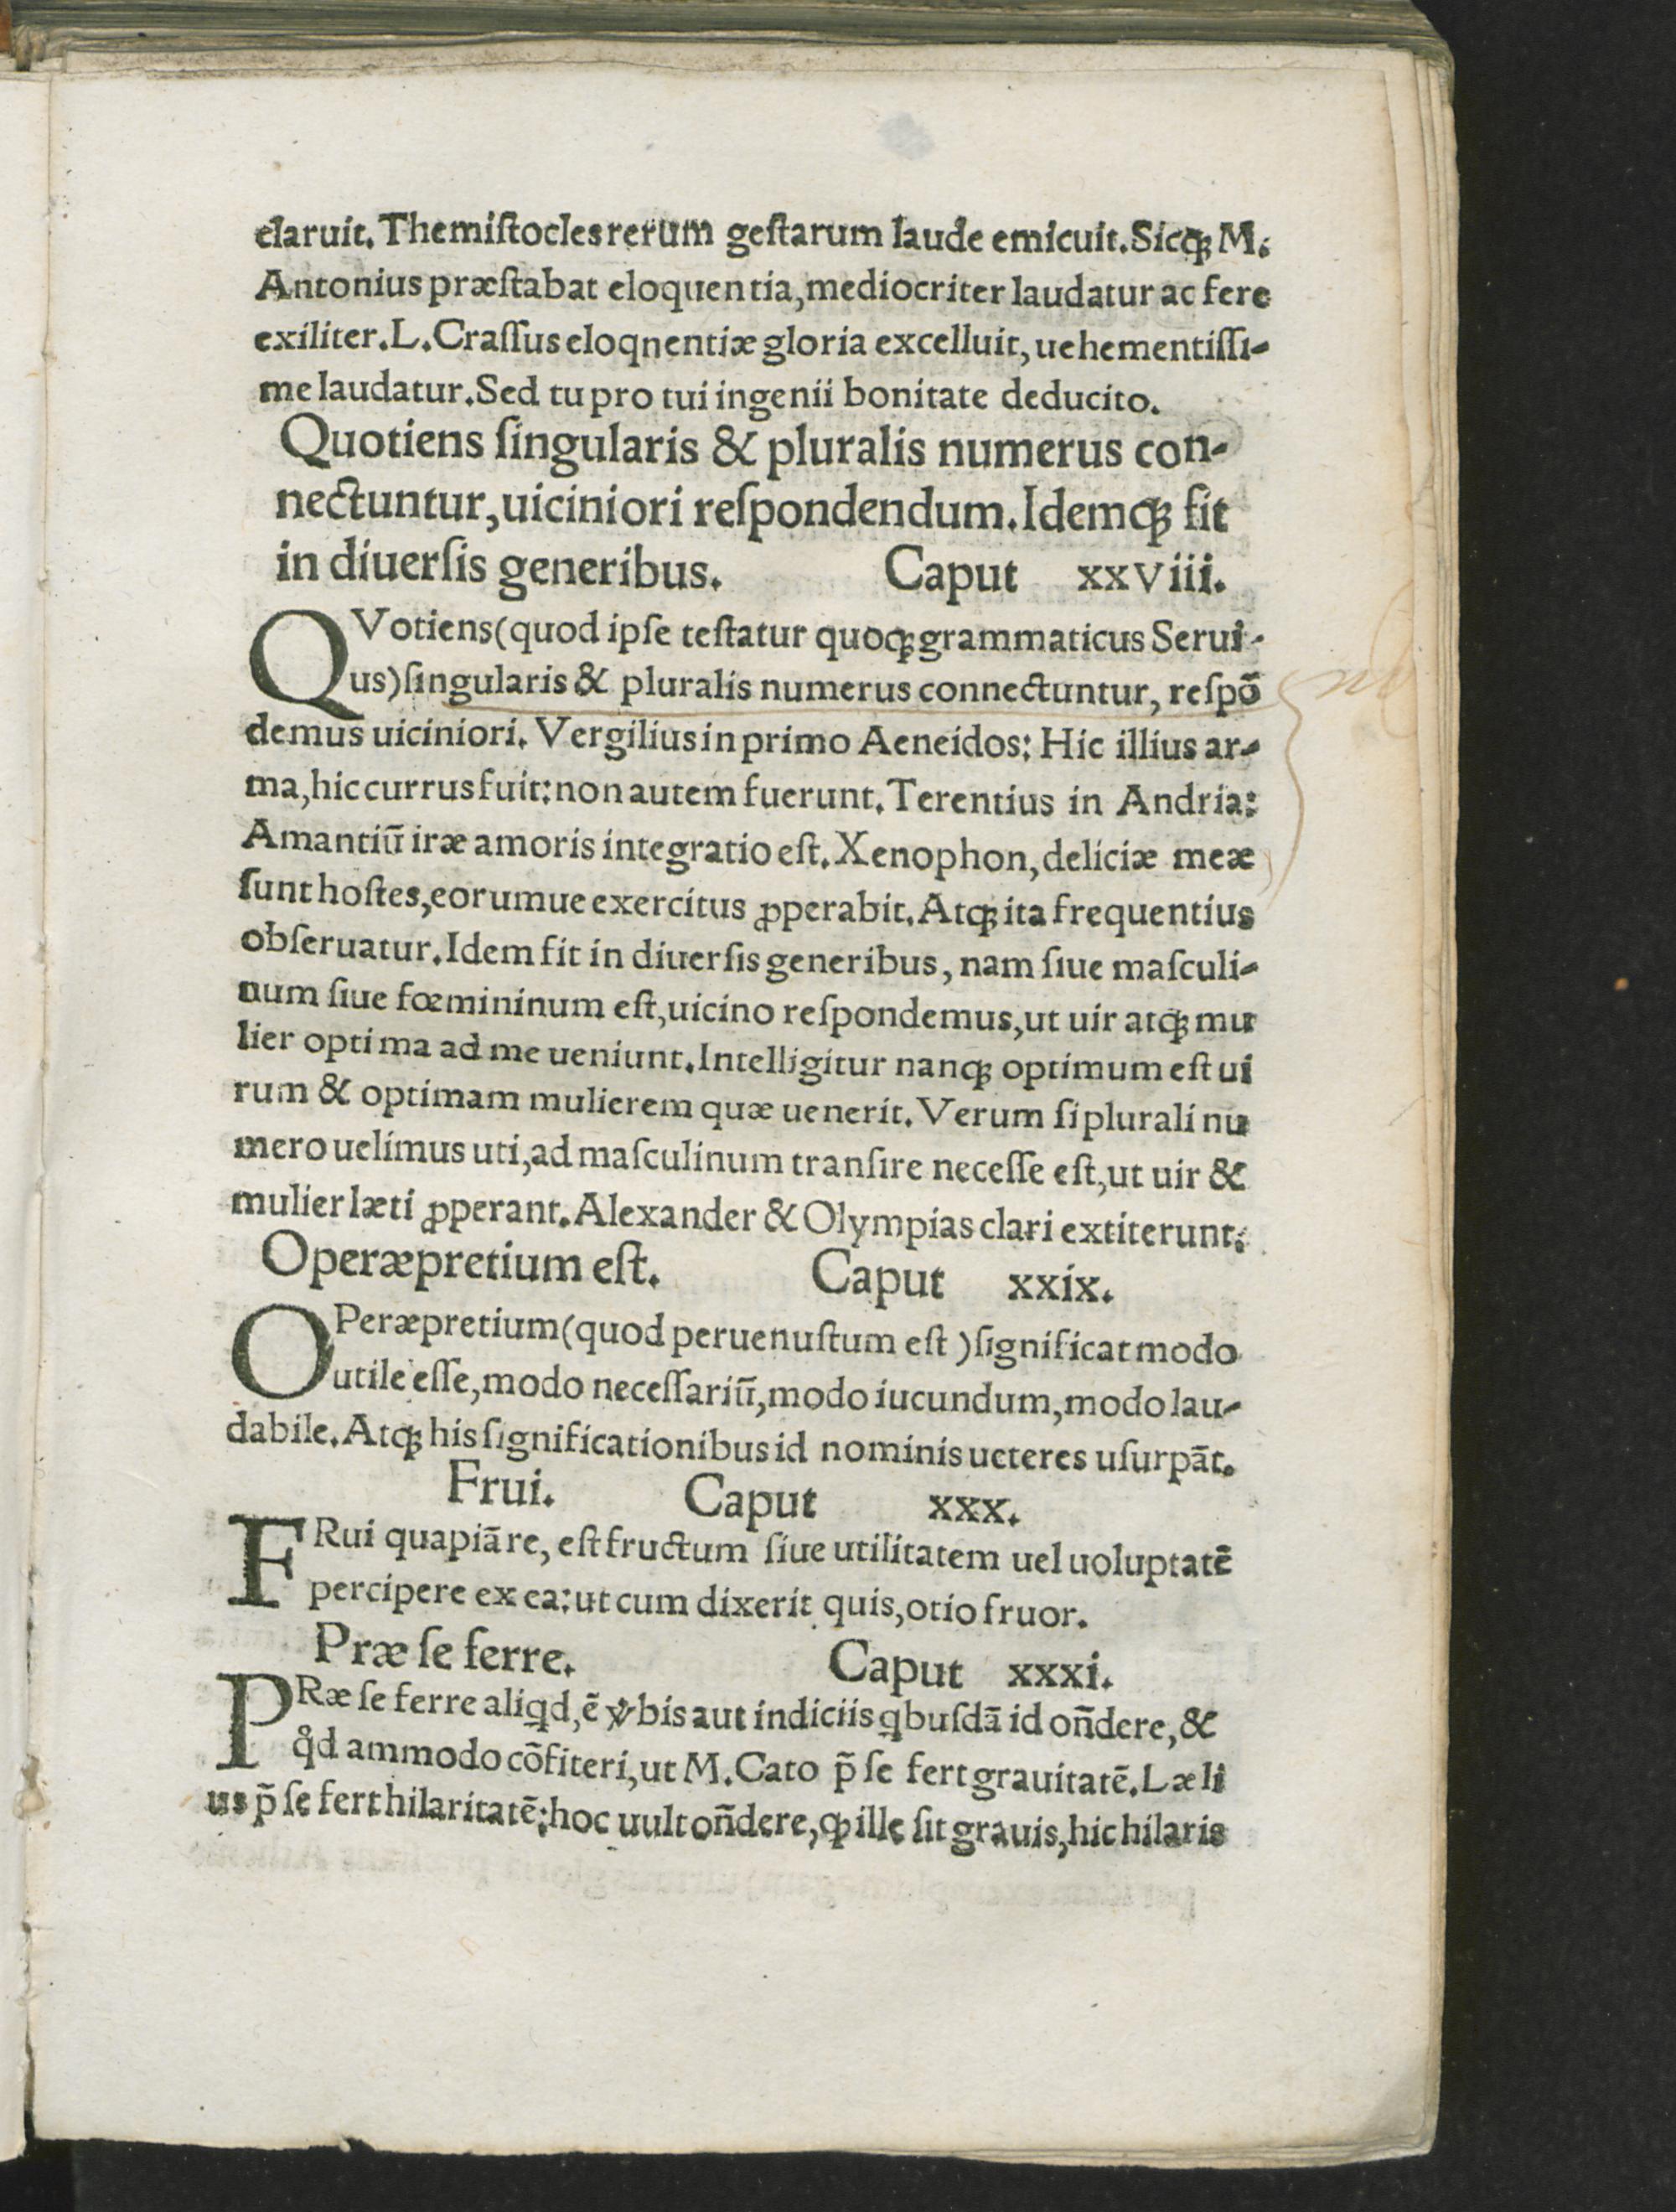 claruit. Themiſtocles rerum geſtarum laude emicuit. Sicq; M.
Antonius præſtabat eloquentia, mediocriter laudatur ac fere
exiliter. L. Craſſus eloqnentiæ gloria excelluit, uehementiſſi-
me laudatur. Sed tu pro tui ingenii bonitate deducito.
Quotiens ſingularis & pluralis numerus con-
nectuntur, uiciniori reſpondendum. Idemq; fit
in diuerſis generibus. Caput xxViii.
QVotiens (quod ipſe teſtatur quoq; grammaticus Serui-
us) ſingularis & pluralis numerus connectuntur, reſpō
demus uiciniori. Vergilius in primo Aeneidos: Hic illius ar-
ma, hic currus fuit: non autem fuerunt. Terentius in Andria:
Amantiū iræ amoris integratio eſt. Xenophon, deliciæ meæ
ſunt hoſtes, eorumue exercitus ꝓperabit. Atq; ita frequentius
obſeruatur. Idem fit in diuerſis generibus, nam ſiue maſculi-
num ſiue fœmininum eſt, uicino reſpondemus, ut uir atq; mu
lier optima ad me ueniunt. Intelligitur nanq; optimum eſt ui
rum & optimam mulierem quæ uenerit. Verum ſi plurali nu
mero uelimus uti, ad maſculinum tranſire neceſſe eſt, ut uir &
mulier læti ꝓperant. Alexander & Olympias clari extiterunt.
Operæpretium eſt. Caput xxix.
OPeræpretium (quod peruenuſtum eſt) ſignificat modo
utile eſſe, modo neceſſariū, modo iucundum, modo lau-
dabile. Atq; his ſignificationibus id nominis ueteres uſurpāt.
Frui. Caput xxx.
FRui quapiā re, eſt fructum ſiue utilitatem uel uoluptatē
percipere ex ea: ut cum dixerit quis, otio fruor.
Præ ſe ferre. Caput xxxi.
PRæ ſe ferre aliꝗd, ē ꝟbis aut indiciis ꝗbuſdā id on̄dere, &
qͦd ammodo cōfiteri, ut M. Cato p̄ ſe fert grauitatē. Læli
us p̄ ſe fert hilaritatē: hoc uult on̄dere, ꝙ ille ſit grauis, hic hilaris